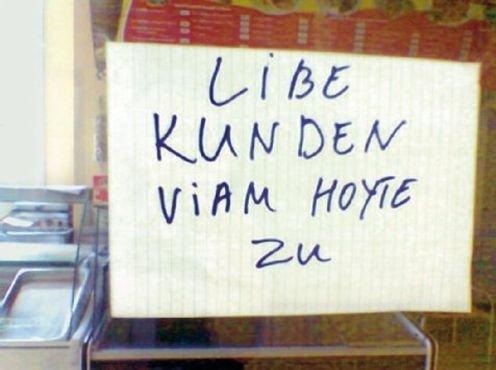 LiBE
KUNDEN
ViAM HOYTE
ZU